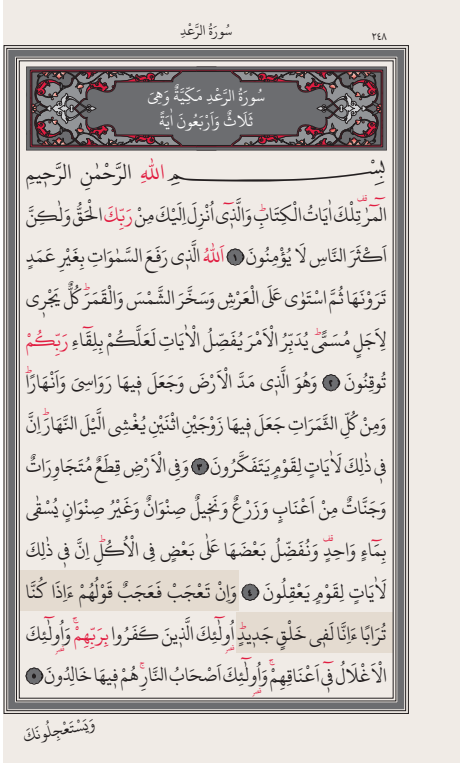 سُورَةُ الرَّعْدِ
٢٤٨
سُورَةُ الرَّعْدِ مَكِّيَّةٌ وَهِيَ
ثَلَاثٌ وَاَرْبَعُونَ اٰيَةً
بِسْمِ اللّٰهِ الرَّحْمٰنِ الرَّحٖيمِ
الٓمٓرٰ تِلْكَ اٰيَاتُ الْكِتَابِؕ وَالَّذٖٓي اُنْزِلَ اِلَيْكَ مِنْ رَبِّكَ الْحَقُّ وَلٰكِنَّ
اَكْثَرَ النَّاسِ لَا يُؤْمِنُونَ ١ اَللّٰهُ الَّذٖي رَفَعَ السَّمٰوَاتِ بِغَيْرِ عَمَدٍ
تَرَوْنَهَا ثُمَّ اسْتَوٰى عَلَى الْعَرْشِ وَسَخَّرَ الشَّمْسَ وَالْقَمَرَؕ كُلٌّ يَجْرٖي
لِاَجَلٍ مُسَمًّىؕ يُدَبِّرُ الْاَمْرَ يُفَصِّلُ الْاٰيَاتِ لَعَلَّكُمْ بِلِقَٓاءِ رَبِّكُمْ
تُوقِنُونَ ٢ وَهُوَ الَّذٖي مَدَّ الْاَرْضَ وَجَعَلَ فٖيهَا رَوَاسِيَ وَاَنْهَارًاؕ
وَمِنْ كُلِّ الثَّمَرَاتِ جَعَلَ فٖيهَا زَوْجَيْنِ اثْنَيْنِ يُغْشِي الَّيْلَ النَّهَارَؕ اِنَّ
فٖي ذٰلِكَ لَاٰيَاتٍ لِقَوْمٍ يَتَفَكَّرُونَ ٣ وَفِي الْاَرْضِ قِطَعٌ مُتَجَاوِرَاتٌ
وَجَنَّاتٌ مِنْ اَعْنَابٍ وَزَرْعٌ وَنَخٖيلٌ صِنْوَانٌ وَغَيْرُ صِنْوَانٍ يُسْقٰى
بِمَٓاءٍ وَاحِدٍ وَنُفَضِّلُ بَعْضَهَا عَلٰى بَعْضٍ فِي الْاُكُلِؕ اِنَّ فٖي ذٰلِكَ
لَاٰيَاتٍ لِقَوْمٍ يَعْقِلُونَ ٤ وَاِنْ تَعْجَبْ فَعَجَبٌ قَوْلُهُمْ ءَاِذَا كُنَّا
تُرَابًا ءَاِنَّا لَفٖي خَلْقٍ جَدٖيدٍؕ اُو۬لٰٓئِكَ الَّذٖينَ كَفَرُوا بِرَبِّهِمْۚ وَاُو۬لٰٓئِكَ
الْاَغْلَالُ فٖٓي اَعْنَاقِهِمْۚ وَاُو۬لٰٓئِكَ اَصْحَابُ النَّارِۚ هُمْ فٖيهَا خَالِدُونَ ٥
وَيَسْتَعْجِلُونَكَ